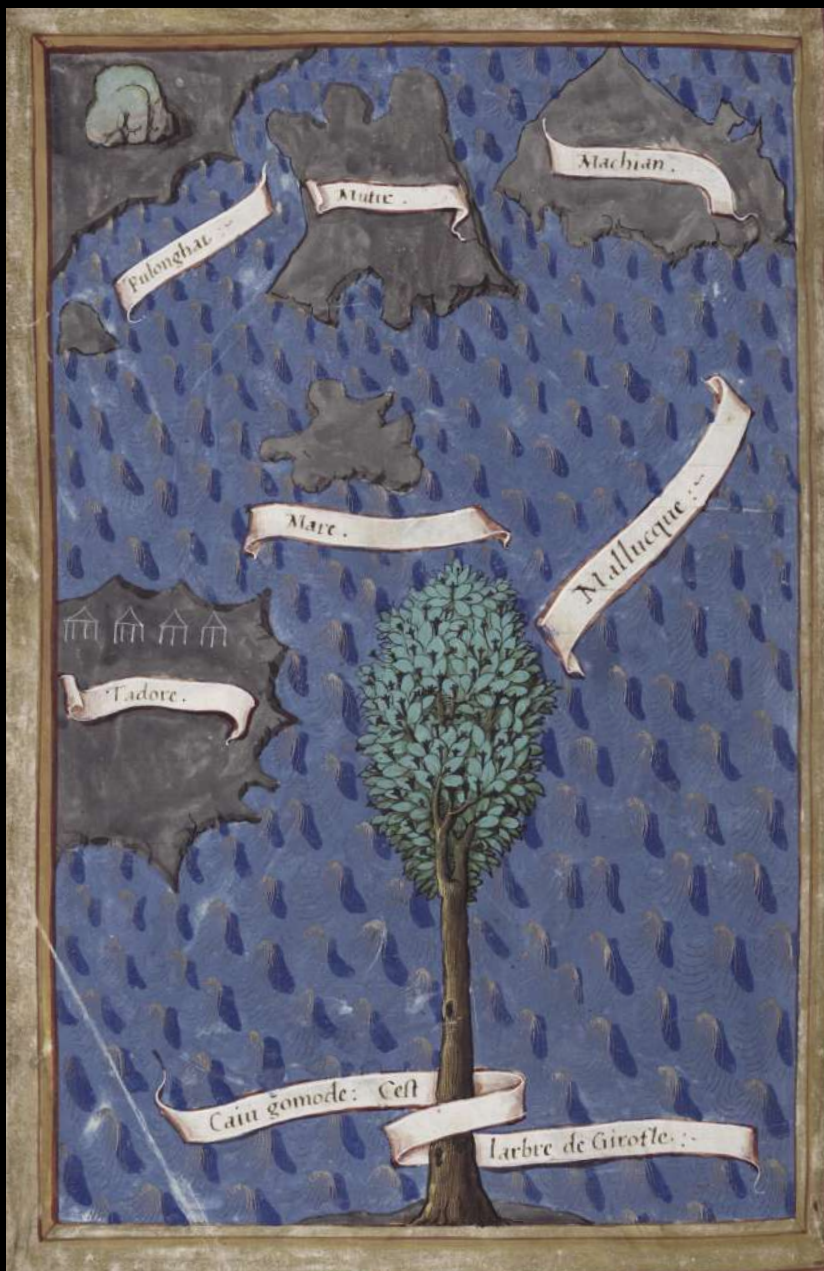 Pulonghat :~
Mutir .
Machian .
Mare .
Mallucque :~
Tadore .
Caiu gōmode : Cest
larbre de Girofle . :~